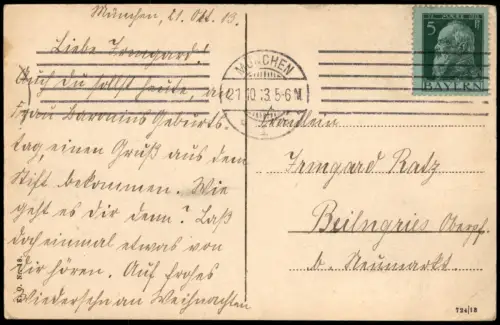 München, 21. Okt. 13.
Liebe Irmgard!
Auch Du sollst heute, an
Frau Baronins Geburts-
tag, einen Gruß aus dem
Stift bekommen. Wie
geht es dir denn? Laß
doch einmal etwas von
dir hören. Auf frohes
Wiedersehn an Weihnachten
MÜNCHEN
21.10.13.5-6N.
5
BAYERN
Fräulein
Irmgard Ratz
Beilngries Oberpf.
b. Neumarkt.
724/18